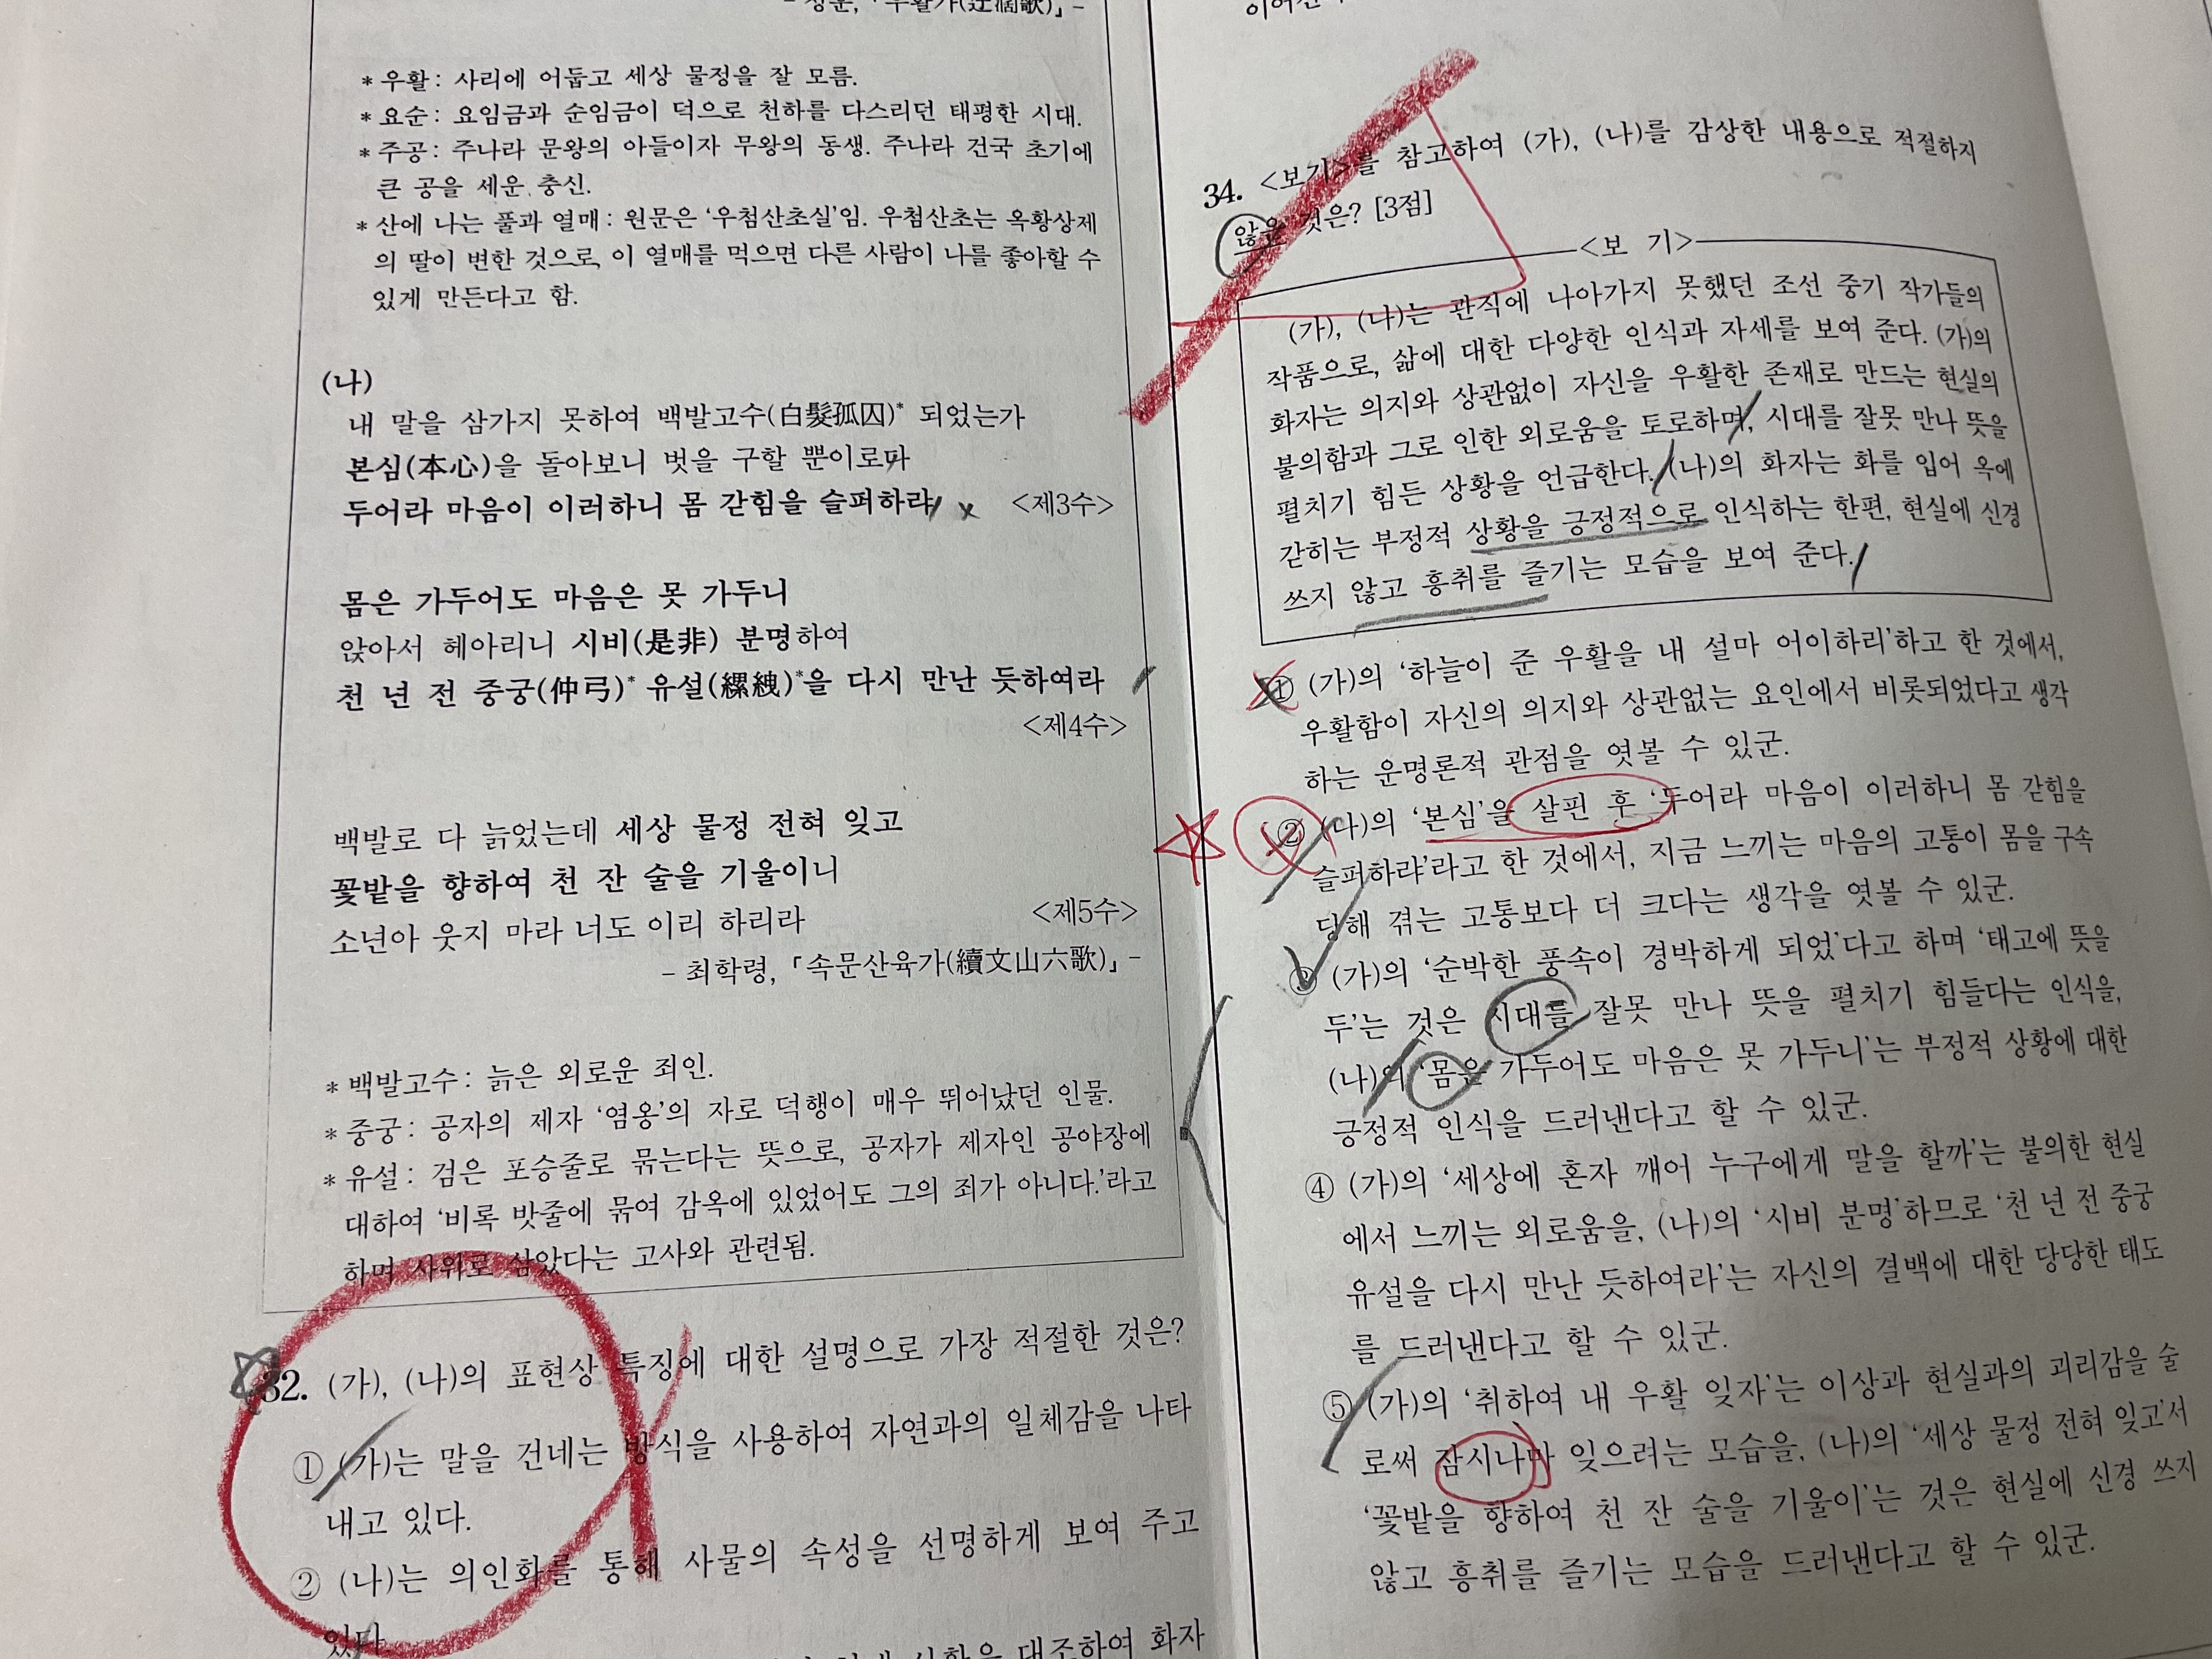 「우활가(迂闊歌)」-
* 우활 : 사리에 어둡고 세상 물정을 잘 모름.
* 요순 : 요임금과 순임금이 덕으로 천하를 다스리던 태평한 시대.
* 주공 : 주나라 문왕의 아들이자 무왕의 동생. 주나라 건국 초기에
큰 공을 세운 충신.
* 산에 나는 풀과 열매 : 원문은 ‘우첨산초실’임. 우첨산초는 옥황상제
의 딸이 변한 것으로, 이 열매를 먹으면 다른 사람이 나를 좋아할 수
있게 만든다고 함.
(나)
내 말을 삼가지 못하여 백발고수(白髮孤囚)* 되었는가
본심(本心)을 돌아보니 벗을 구할 뿐이로다
두어라 마음이 이러하니 몸 갇힘을 슬퍼하랴 <제3수>
몸은 가두어도 마음은 못 가두니
앉아서 헤아리니 시비(是非) 분명하여
천 년 전 중궁(仲弓)* 유설(縲絏)*을 다시 만난 듯하여라
<제4수>
백발로 다 늙었는데 세상 물정 전혀 잊고
꽃밭을 향하여 천 잔 술을 기울이니
소년아 웃지 마라 너도 이리 하리라 <제5수>
- 최학령, 「속문산육가(續文山六歌)」-
* 백발고수 : 늙은 외로운 죄인.
* 중궁 : 공자의 제자 ‘염옹’의 자로 덕행이 매우 뛰어났던 인물.
* 유설 : 검은 포승줄로 묶는다는 뜻으로, 공자가 제자인 공야장에
대하여 ‘비록 밧줄에 묶여 감옥에 있었어도 그의 죄가 아니다.’라고
하며 사위로 삼았다는 고사와 관련됨.
32. (가), (나)의 표현상 특징에 대한 설명으로 가장 적절한 것은?
① (가)는 말을 건네는 방식을 사용하여 자연과의 일체감을 나타
내고 있다.
② (나)는 의인화를 통해 사물의 속성을 선명하게 보여 주고
있다.
상황을 대조하여 화자
34. <보기>를 참고하여 (가), (나)를 감상한 내용으로 적절하지
않은 것은? [3점]
<보 기>
(가), (나)는 관직에 나아가지 못했던 조선 중기 작가들의
작품으로, 삶에 대한 다양한 인식과 자세를 보여 준다. (가)의
화자는 의지와 상관없이 자신을 우활한 존재로 만드는 현실의
불의함과 그로 인한 외로움을 토로하며, 시대를 잘못 만나 뜻을
펼치기 힘든 상황을 언급한다. (나)의 화자는 화를 입어 옥에
갇히는 부정적 상황을 긍정적으로 인식하는 한편, 현실에 신경
쓰지 않고 흥취를 즐기는 모습을 보여 준다.
① (가)의 ‘하늘이 준 우활을 내 설마 어이하리’하고 한 것에서,
우활함이 자신의 의지와 상관없는 요인에서 비롯되었다고 생각
하는 운명론적 관점을 엿볼 수 있군.
② (나)의 ‘본심’을 살핀 후 ‘두어라 마음이 이러하니 몸 갇힘을
슬퍼하랴’라고 한 것에서, 지금 느끼는 마음의 고통이 몸을 구속
당해 겪는 고통보다 더 크다는 생각을 엿볼 수 있군.
③ (가)의 ‘순박한 풍속이 경박하게 되었’다고 하며 ‘태고에 뜻을
두’는 것은 시대를 잘못 만나 뜻을 펼치기 힘들다는 인식을,
(나)의 ‘몸은 가두어도 마음은 못 가두니’는 부정적 상황에 대한
긍정적 인식을 드러낸다고 할 수 있군.
④ (가)의 ‘세상에 혼자 깨어 누구에게 말을 할까’는 불의한 현실
에서 느끼는 외로움을, (나)의 ‘시비 분명’하므로 ‘천 년 전 중궁
유설을 다시 만난 듯하여라’는 자신의 결백에 대한 당당한 태도
를 드러낸다고 할 수 있군.
⑤ (가)의 ‘취하여 내 우활 잊자’는 이상과 현실과의 괴리감을 술
로써 잠시나마 잊으려는 모습을, (나)의 ‘세상 물정 전혀 잊고’서
‘꽃밭을 향하여 천 잔 술을 기울이’는 것은 현실에 신경 쓰지
않고 흥취를 즐기는 모습을 드러낸다고 할 수 있군.